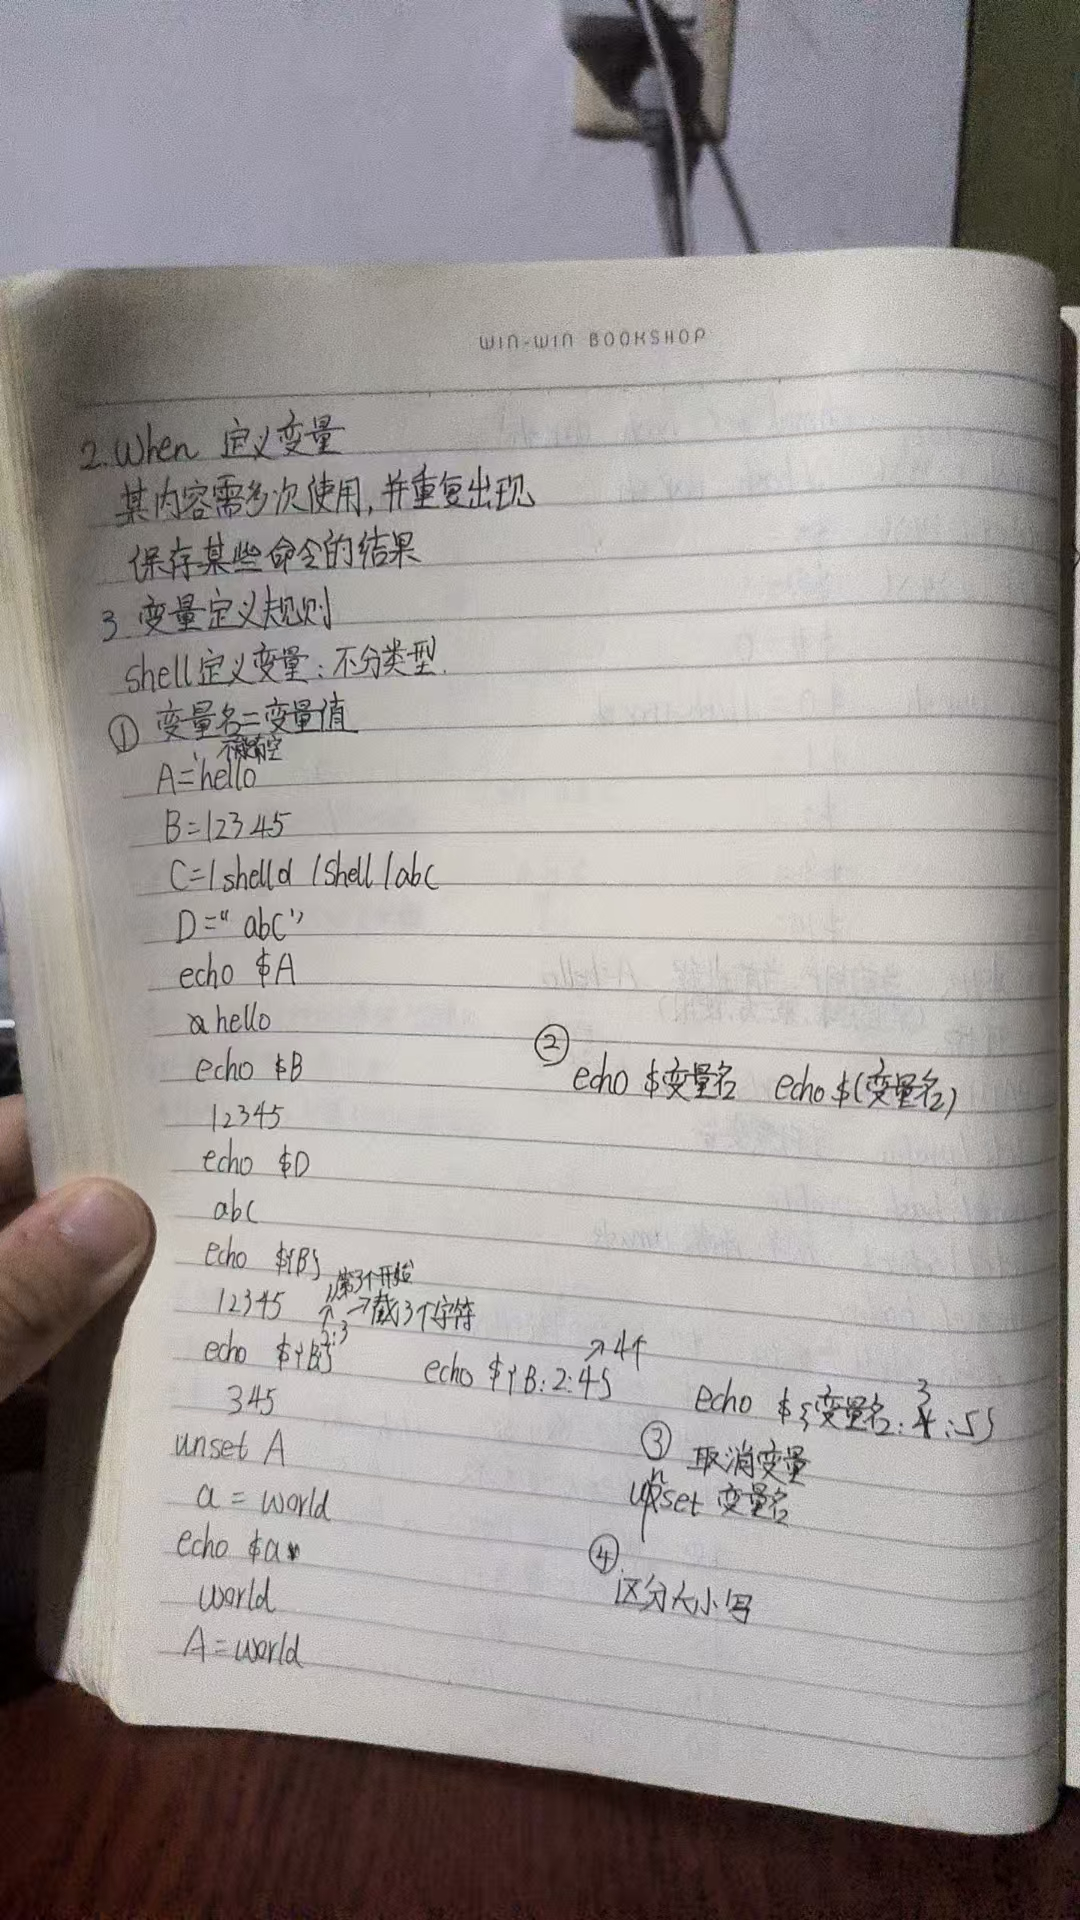 WIN-WIN BOOKSHOP
2. When 定义变量
某内容需多次使用,并重复出现
保存某些命令的结果
3 变量定义规则
shell定义变量:不分类型.
① 变量名=变量值
不能有空
A=hello
B=12345
C=/shelld /shell/abc
D="abc"
echo $A
hello
echo $B
12345
echo $D
abc
echo ${B}
12345
第3个开始
→截3个字符
2:3
echo ${B}
345
unset A
a = world
echo $a
world
A=world
②
echo $变量名 echo $(变量名)
→4个
echo ${B:2:4}
3
echo ${变量名:4:5}
③ 取消变量
unset 变量名
④
区分大小写